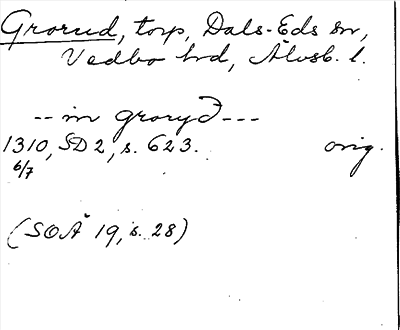 Grorud, torp, Dals-Eds sn,
Vedbo hd, Älvsb. l.
-- in groryð ---
1310, SD 2, s. 623. orig.
6/7
(SOÄ 19, s. 28)